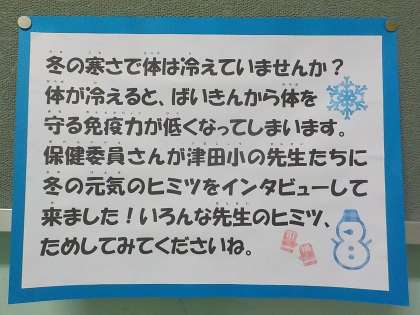 冬の寒さで体は冷えていませんか？
体が冷えると、ばいきんから体を
守る免疫力が低くなってしまいます。
保健委員さんが津田小の先生たちに
冬の元気のヒミツをインタビューして
来ました！いろんな先生のヒミツ、
ためしてみてくださいね。